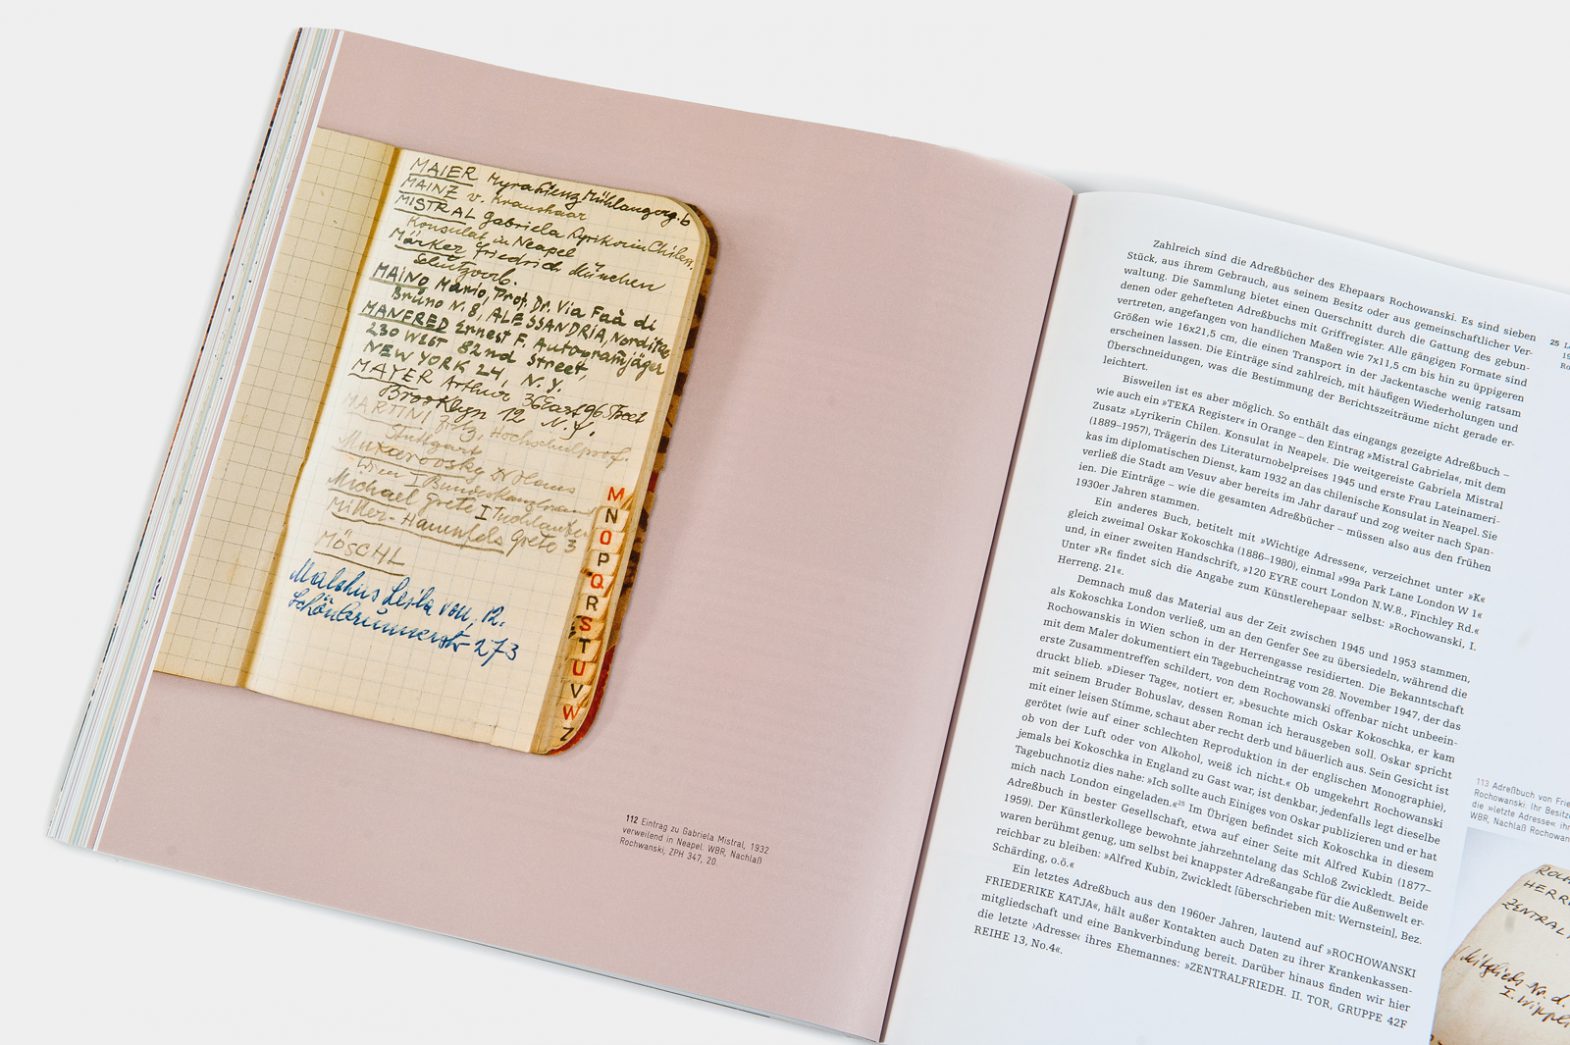 MAIER Myra Wienz Mühlangorg. 6
MAINZ v. Kraushaar
MISTRAL Gabriela Lyrikerin Chilen.
Konsulat in Neapel
Märker Friedrich München
Schutzverb.
MAINO Mario, Prof. Dr. Via Faà di
Bruno N. 8, ALESSANDRIA, Norditk.
MANFRED Ernest F. Autogramjäger
230 WEST 82nd Street,
NEW YORK 24, N.Y.
MAYER Arthur 36 East 96 Street
Brooklyn 12 N.Y.
MARTINI Fritz, Hochschulprof.
Stuttgart
Dr Hans
Wien I Bundeskanzleramt
Michael Grete I Tuchlauben
Mitter-Hauenfels Grete 3
MÖSCHL
Malchus Leila von, 12.
Schönbrunnerstr 273
M
N
O
P
Q
R
S
T
U
V
W
Z
112 Eintrag zu Gabriela Mistral, 1932
verweilend in Neapel. WBR, Nachlaß
Rochwanski, ZPH 347, 20.
Zahlreich sind die Adreßbücher des Ehepaars Rochowanski. Es sind sieben
Stück, aus ihrem Gebrauch, aus seinem Besitz oder aus gemeinschaftlicher Ver-
waltung. Die Sammlung bietet einen Querschnitt durch die Gattung des gebun-
denen oder gehefteten Adreßbuchs mit Griffregister. Alle gängigen Formate sind
vertreten, angefangen von handlichen Maßen wie 7x11,5 cm bis hin zu üppigeren
Größen wie 16x21,5 cm, die einen Transport in der Jackentasche wenig ratsam
erscheinen lassen. Die Einträge sind zahlreich, mit häufigen Wiederholungen und
Überschneidungen, was die Bestimmung der Berichtszeiträume nicht gerade er-
leichtert.
Bisweilen ist es aber möglich. So enthält das eingangs gezeigte Adreßbuch –
wie auch ein »TEKA Register« in Orange – den Eintrag »Mistral Gabriela«, mit dem
Zusatz »Lyrikerin Chilen. Konsulat in Neapel«. Die weitgereiste Gabriela Mistral
(1889–1957), Trägerin des Literaturnobelpreises 1945 und erste Frau Lateinameri-
kas im diplomatischen Dienst, kam 1932 an das chilenische Konsulat in Neapel. Sie
verließ die Stadt am Vesuv aber bereits im Jahr darauf und zog weiter nach Span-
ien. Die Einträge – wie die gesamten Adreßbücher – müssen also aus den frühen
1930er Jahren stammen.
Ein anderes Buch, betitelt mit »Wichtige Adressen«, verzeichnet unter »K«
gleich zweimal Oskar Kokoschka (1886–1980), einmal »99a Park Lane London W 1«
und, in einer zweiten Handschrift, »120 EYRE court London N.W.8., Finchley Rd.«
Unter »R« findet sich die Angabe zum Künstlerehepaar selbst: »Rochowanski, I.
Herreng. 21«.
Demnach muß das Material aus der Zeit zwischen 1945 und 1953 stammen,
als Kokoschka London verließ, um an den Genfer See zu übersiedeln, während die
Rochowanskis in Wien schon in der Herrengasse residierten. Die Bekanntschaft
mit dem Maler dokumentiert ein Tagebucheintrag vom 28. November 1947, der das
erste Zusammentreffen schildert, von dem Rochowanski offenbar nicht unbeein-
druckt blieb. »Dieser Tage«, notiert er, »besuchte mich Oskar Kokoschka, er kam
mit seinem Bruder Bohuslav, dessen Roman ich herausgeben soll. Oskar spricht
mit einer leisen Stimme, schaut aber recht derb und bäuerlich aus. Sein Gesicht ist
gerötet (wie auf einer schlechten Reproduktion in der englischen Monographie),
ob von der Luft oder von Alkohol, weiß ich nicht.« Ob umgekehrt Rochowanski
jemals bei Kokoschka in England zu Gast war, ist denkbar, jedenfalls legt dieselbe
Tagebuchnotiz dies nahe: »Ich sollte auch Einiges von Oskar publizieren und er hat
mich nach London eingeladen.«²⁵ Im Übrigen befindet sich Kokoschka in diesem
Adreßbuch in bester Gesellschaft, etwa auf einer Seite mit Alfred Kubin (1877–
1959). Der Künstlerkollege bewohnte jahrzehntelang das Schloß Zwickledt. Beide
waren berühmt genug, um selbst bei knappster Adreßangabe für die Außenwelt er-
reichbar zu bleiben: »Alfred Kubin, Zwickledt [überschrieben mit: Wernstein], Bez.
Schärding, o.ö.«
Ein letztes Adreßbuch aus den 1960er Jahren, lautend auf »ROCHOWANSKI
FRIEDERIKE KATJA«, hält außer Kontakten auch Daten zu ihrer Krankenkassen-
mitgliedschaft und eine Bankverbindung bereit. Darüber hinaus finden wir hier
die letzte ›Adresse‹ ihres Ehemannes: »ZENTRALFRIEDH. II. TOR, GRUPPE 42F
REIHE 13, No.4«.
25 L
19
Ro
113 Adreßbuch von Frie
Rochowanski: Ihr Besitz
die »letzte Adresse« ihr
WBR, Nachlaß Rochowan
ROCH
HERRE
ZENTRAL
Mitglieds Nr. d.
I. Wippl